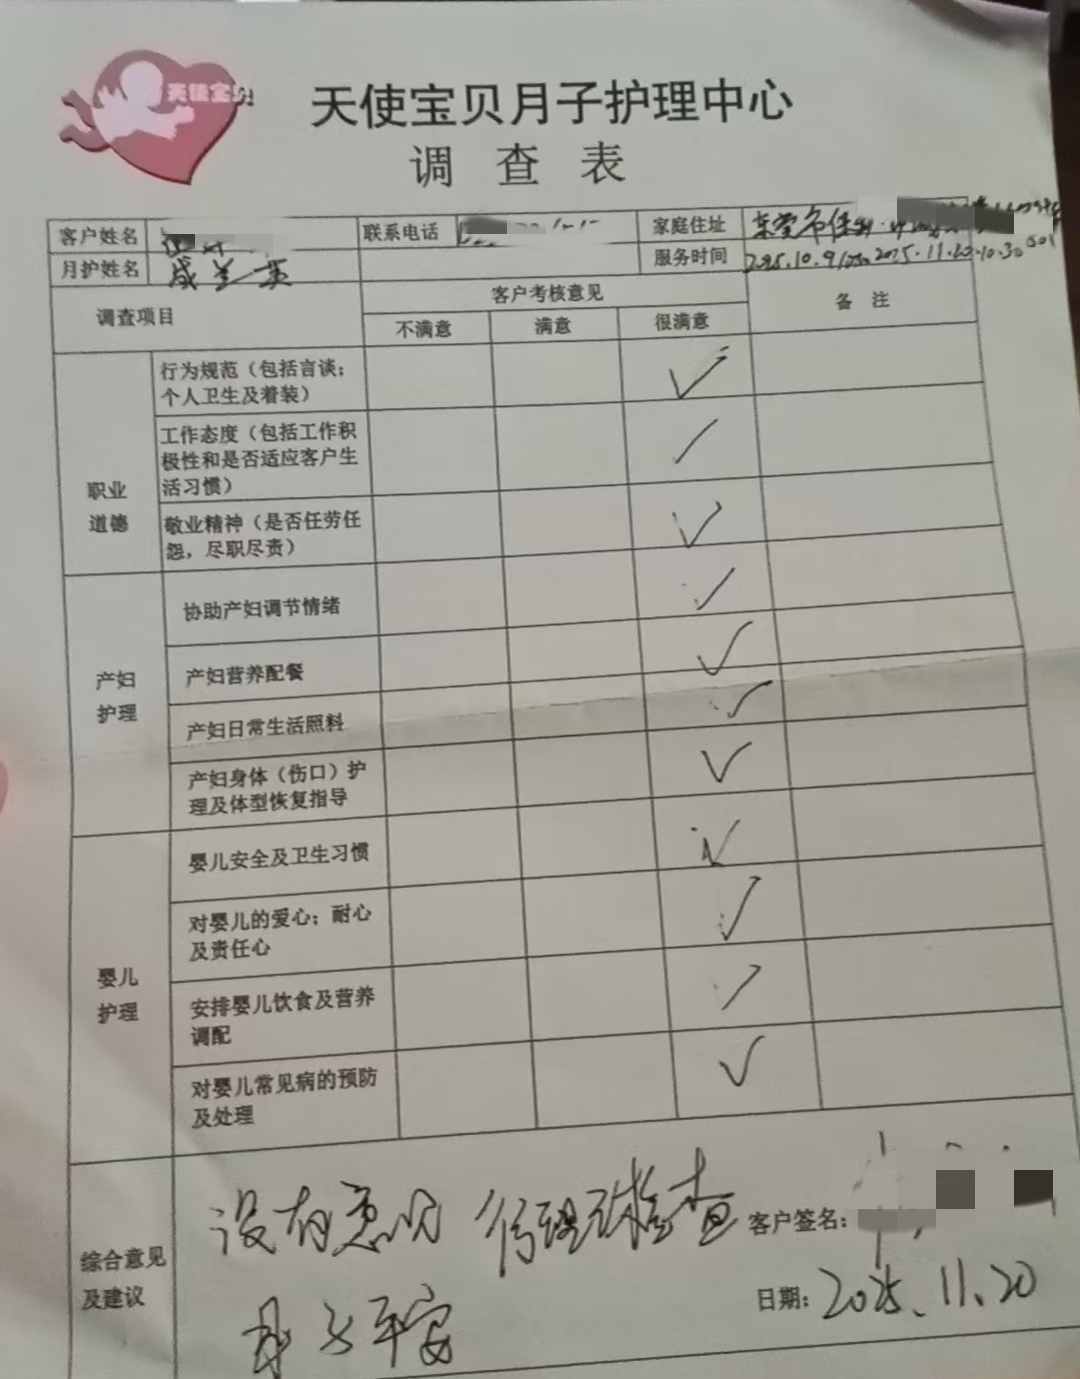 天使宝贝
天使宝贝月子护理中心
调查表
客户姓名 联系电话 家庭住址 东莞市
月护姓名 成兰英 服务时间 2025.10.9 2025.11.20.10.30
调查项目 客户考核意见 备注
不满意 满意 很满意
职业
道德
行为规范（包括言谈；
个人卫生及着装） ✓
工作态度（包括工作积
极性和是否适应客户生
活习惯） ✓
敬业精神（是否任劳任
怨，尽职尽责） ✓
产妇
护理
协助产妇调节情绪 ✓
产妇营养配餐 ✓
产妇日常生活照料 ✓
产妇身体（伤口）护
理及体型恢复指导 ✓
婴儿
护理
婴儿安全及卫生习惯 ✓
对婴儿的爱心；耐心
及责任心 ✓
安排婴儿饮食及营养
调配 ✓
对婴儿常见病的预防
及处理 ✓
综合意见
及建议
没有意见 检查
母子平安
客户签名：
日期：2025.11.20